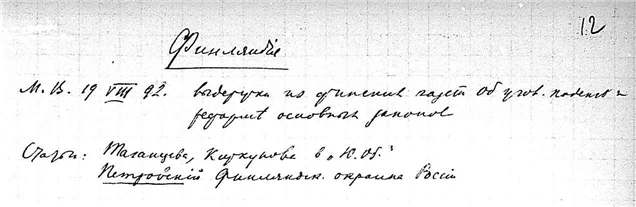 12
Финляндiя
М. В. 19 VIII 92. выдержки из финских газет об угов. кодексѣ и
реформѣ основных законов
Статьи: Таганцева, Коркунова в „Ю. Об."
Петровскiй Финляндск. окраина Россiи